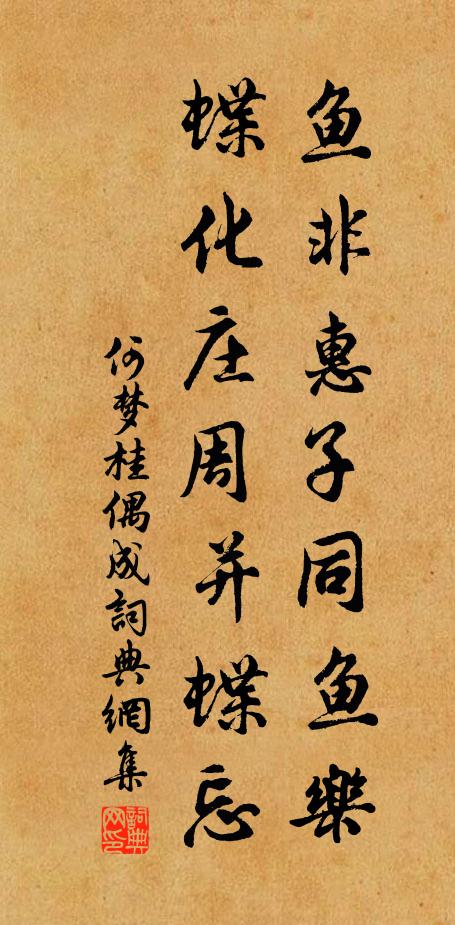 鱼非惠子同鱼樂
蝶化庄周并蝶忘
何梦桂偶成詞典網集
詞典
网印